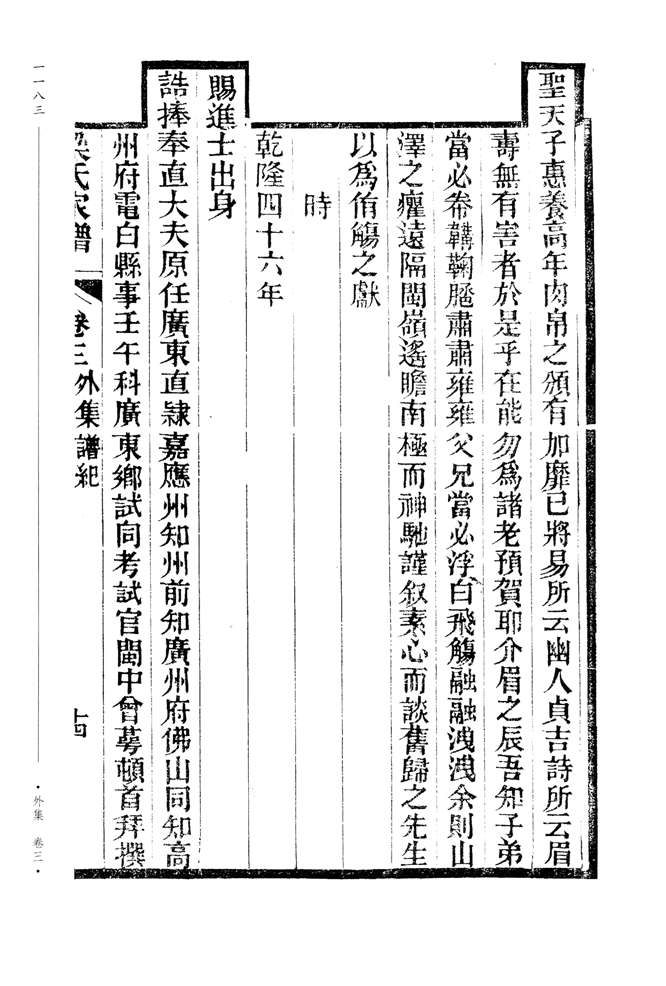 聖天子惠養高年肉帛之頒有加靡已將易所云幽人貞吉詩所云眉
壽無有害者於是乎在能勿爲諸老預賀耶介眉之辰吾知子弟
當必帣韝鞠䠆肅肅雍雍父兄當必浮白飛觴融融洩洩余則山
澤之癯遠隔閩嶺遙瞻南極而神馳謹叙素心而談舊歸之先生
以為侑觴之獻
時
乾隆四十六年
賜進士出身
誥捧奉直大夫原任廣東直隸嘉應州知州前知廣州府佛山同知高
州府電白縣事壬午科廣東鄉試同考試官閩中曾萼頓首拜撰
梁氏家譜 卷三 外集譜紀 十四
一一八三
·外集 卷三·